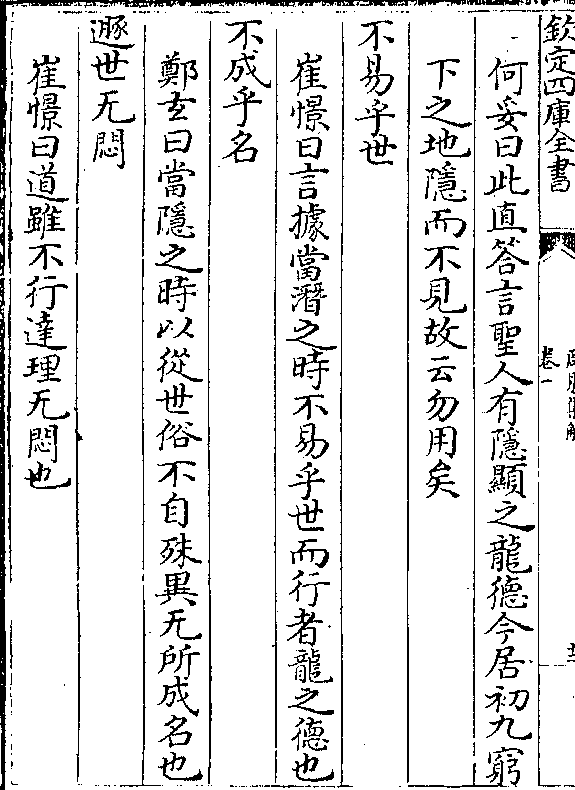 欽定四庫全書
卷一
何妥曰此直答言聖人有隱顯之龍德今居初九窮
下之地隱而不見故云勿用矣
不易乎世
崔憬曰言據當潛之時不易乎世而行者龍之德也
不成乎名
鄭𤣥曰當隱之時以從世俗不自殊異无所成名也
遯世无悶
崔憬曰道雖不行達理无悶也